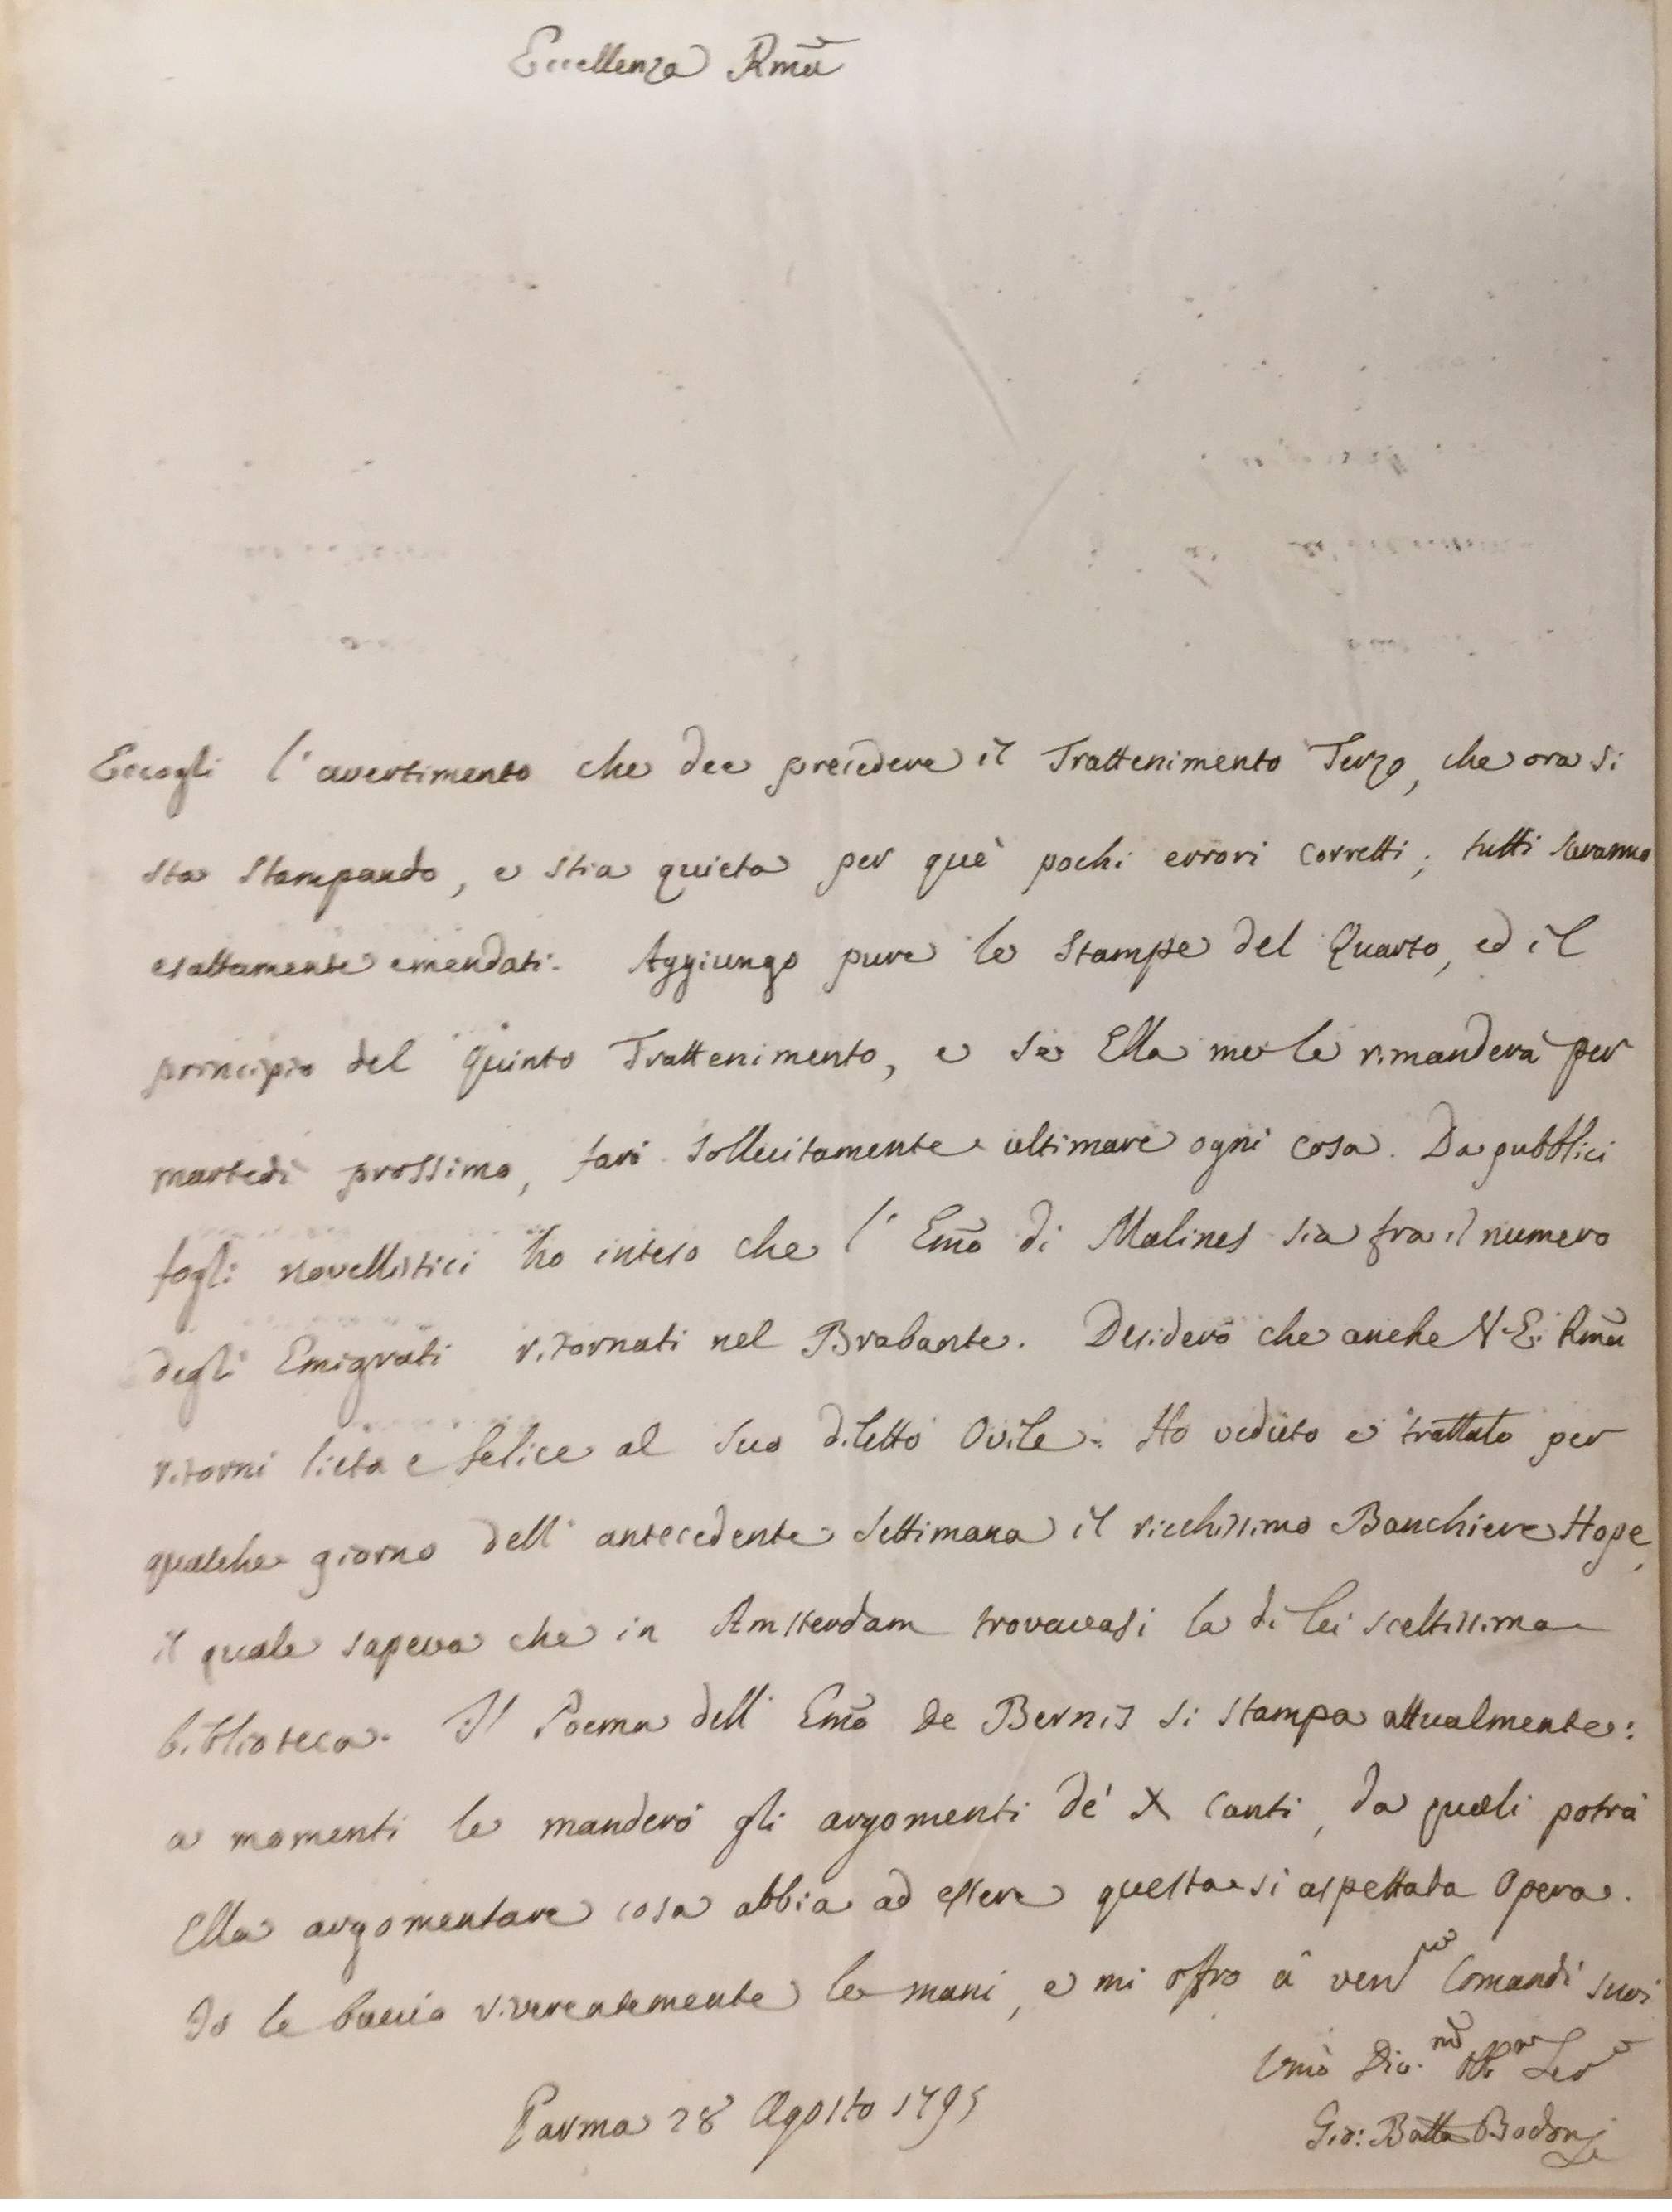 Eccellenza Rma
Eccogli l'avertimento che dee preccedere il Trattenimento Terzo, che ora si
sta stampando, e stia quieta per què pochi errori corretti; tutti saranno
esattamente emendati. Aggiungo pure le stampe del Quarto, ed il
principio del Quinto Trattenimento, e se Ella me le rimanderà per
martedì prossimo, farò sollecitamente ultimare ogni cosa. Da pubblici
fogli novellistici ho inteso che l'Emo di Malines sia fra il numero
degli Emigrati ritornati nel Brabante. Desidero che anche V. E. Rma
ritorni lieta e felice al suo diletto Ovile. Ho veduto e trattato per
qualche giorno dell'antecedente settimana il ricchissimo Banchiere Hope,
il quale sapeva che in Amsterdam trovavasi la di lei sceltissima
biblioteca. Il Poema dell'Emo de Bernis si stampa attualmente:
a momenti le manderò gli argomenti de' X Canti, da quali potrà
Ella argomentare cosa abbia ad essere questa sì aspettata Opera.
Io le baccio riverentemente le mani, e mi offro a' venmi Comandi suoi
Umo Div.mo Obb.mo Ser.e
Parma 28 Agosto 1795
Gio: Batta Bodoni